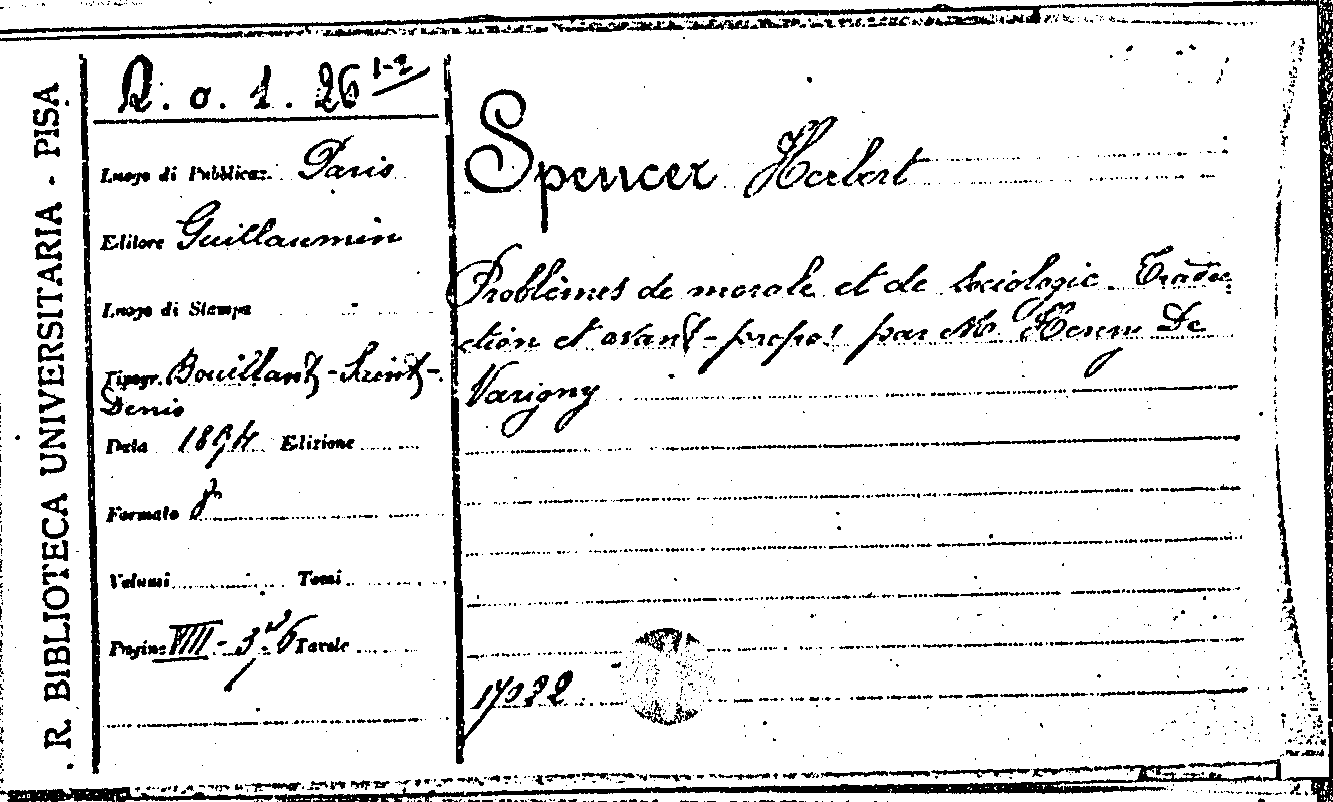 R. BIBLIOTECA UNIVERSITARIA - PISA
R. o. 1. 26 1-2
Luogo di Pubblicaz. Paris
Editore Guillaumin
Luogo di Stampa -
Tipogr. Bouillant-Saint-
Denis
Data 1894 Edizione
Formato 8
Volumi Tomi
Pagine VIII - Tavole
Spencer Herbert
Problèmes de morale et de sociologie. Traduc
ction et avant-propos par M. Henry De
Varigny
17022